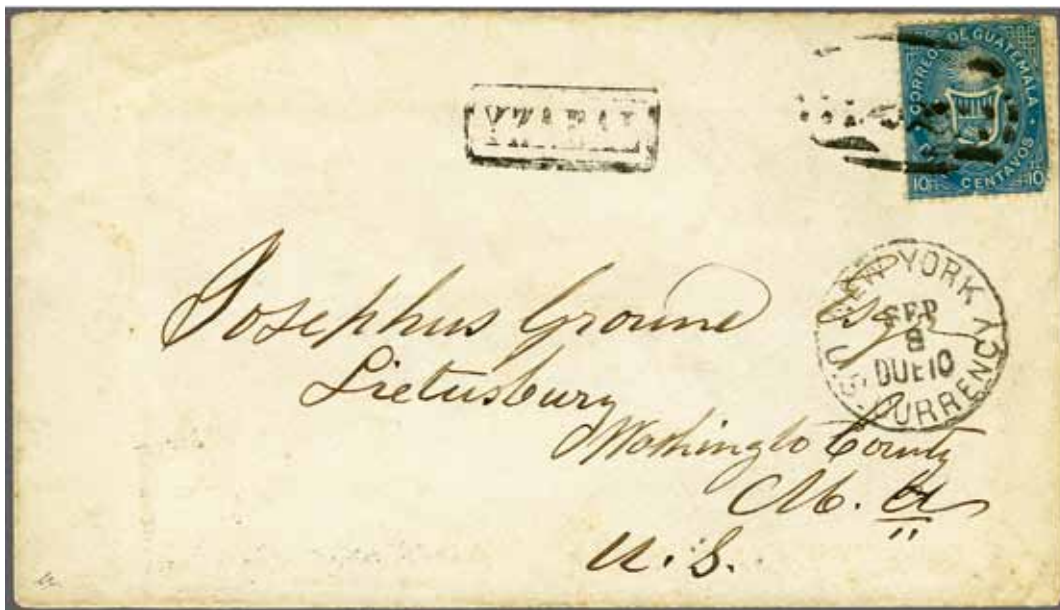 CORREOS DE GUATEMALA
10 CENTAVOS 10
NEW YORK
SEP
8
DUE 10
U.S. CURRENCY
Josephus Ground Esqr
Lietusburg
Washingto County
M. a
U. S.